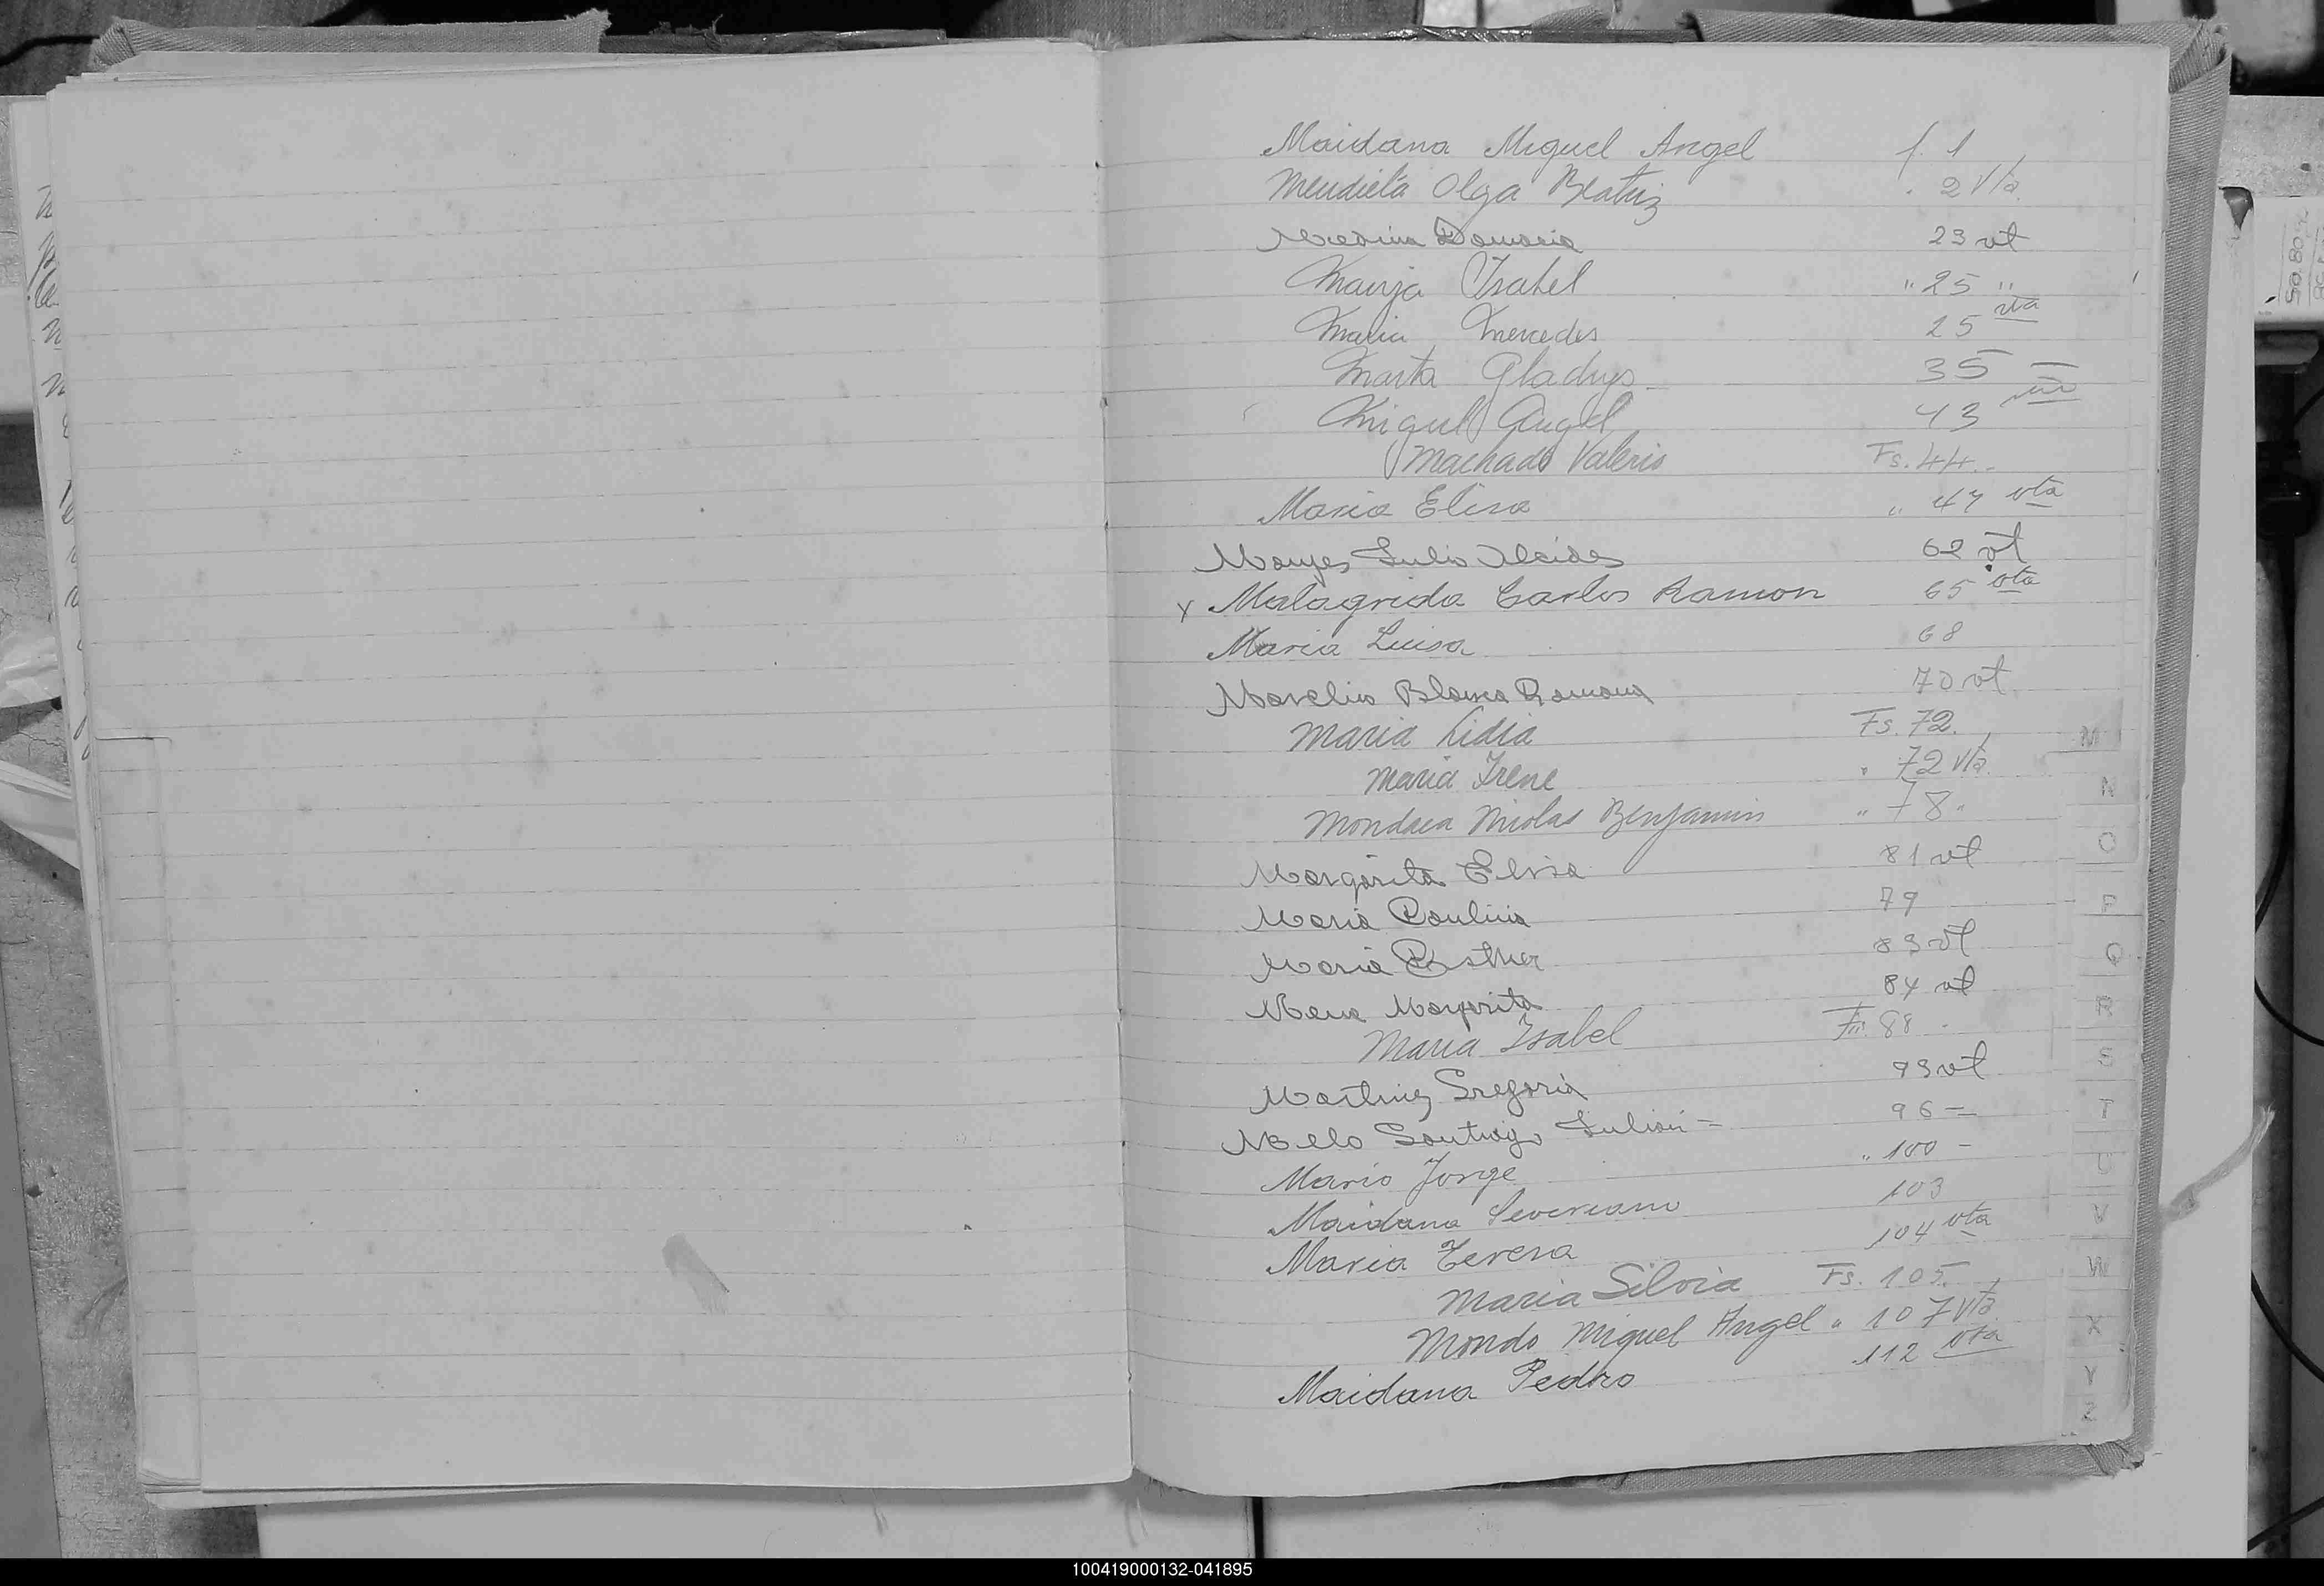 Maidana Miguel Angel f. 1
Mendieta Olga Beatriz " 2 Vta.
Medina Damasia 23 vt
Isabel " 25 "
Maria Mercedes 25 vta
Marta Gladys 35 —
Miguel Angel 43 vta
Machado Valerio Fs. 44.-
Maria Elisa " 47 vta
Julio Alcides 62 vt
x Malagrida Carlos Ramon 65 vta
Maria Luisa 68
Blanca Ramona 70 vt
Maria Lidia Fs. 72.
Maria Irene " 72 Vta.
Mondaca Nicolas Benjamin " 78 "
Margarita Elvisa 81 vt
Maria Paulina 79
Maria Esther 83 vt
Mena Margarita 84 vt
Maria Isabel Fs. 88 -
Martinez Gregoria 93 vt
Melo Santiago Julian - 96 —
Mario Jorge " 100 -
Maidana Severiano 103
Maria Teresa 104 vta
Maria Silvia Fs. 105.
Mondo Miguel Angel " 107 Vta
Maidana Pedro 112 vta
M
N
O
P
Q
R
S
T
U
V
W
X
Y
Z
100419000132-041895